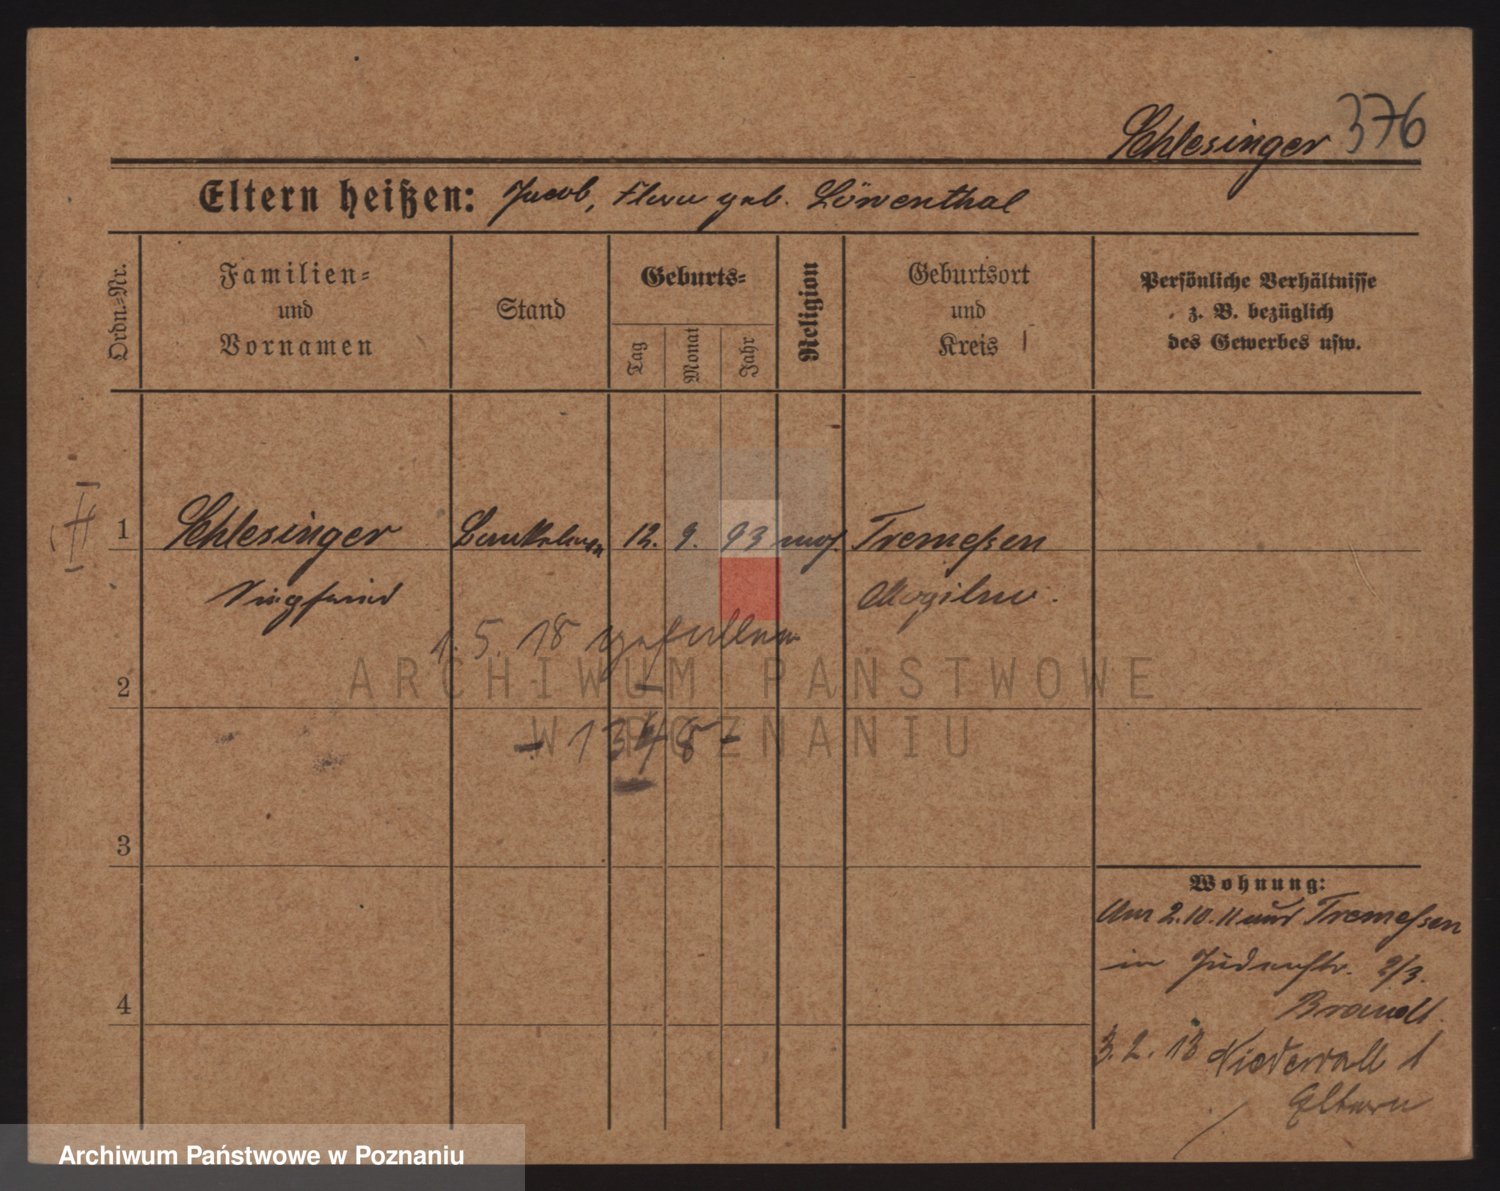 Schlesinger 376
Eltern heißen: Jacob, Flora geb. Löwenthal
Ordn.-Nr.
Familien-
und
Vornamen
Stand
Geburts-
Tag
Monat
Jahr
Religion
Geburtsort
und
Kreis
Persönliche Verhältnisse
z. B. bezüglich
des Gewerbes usw.
1 Schlesinger 12. 9. 93 mos. Tremessen
Siegfried Mogilno.
1. 5. 18 gefallen
ARCHIWUM PAŃSTWOWE
2
W POZNANIU
- 13/8 -
3
Wohnung:
Am 2.10.11 aus Tremessen
in Judenstr. 2/3.
Brandt.
4
3. 2. 13 Niederwall 1
Eltern
Archiwum Państwowe w Poznaniu